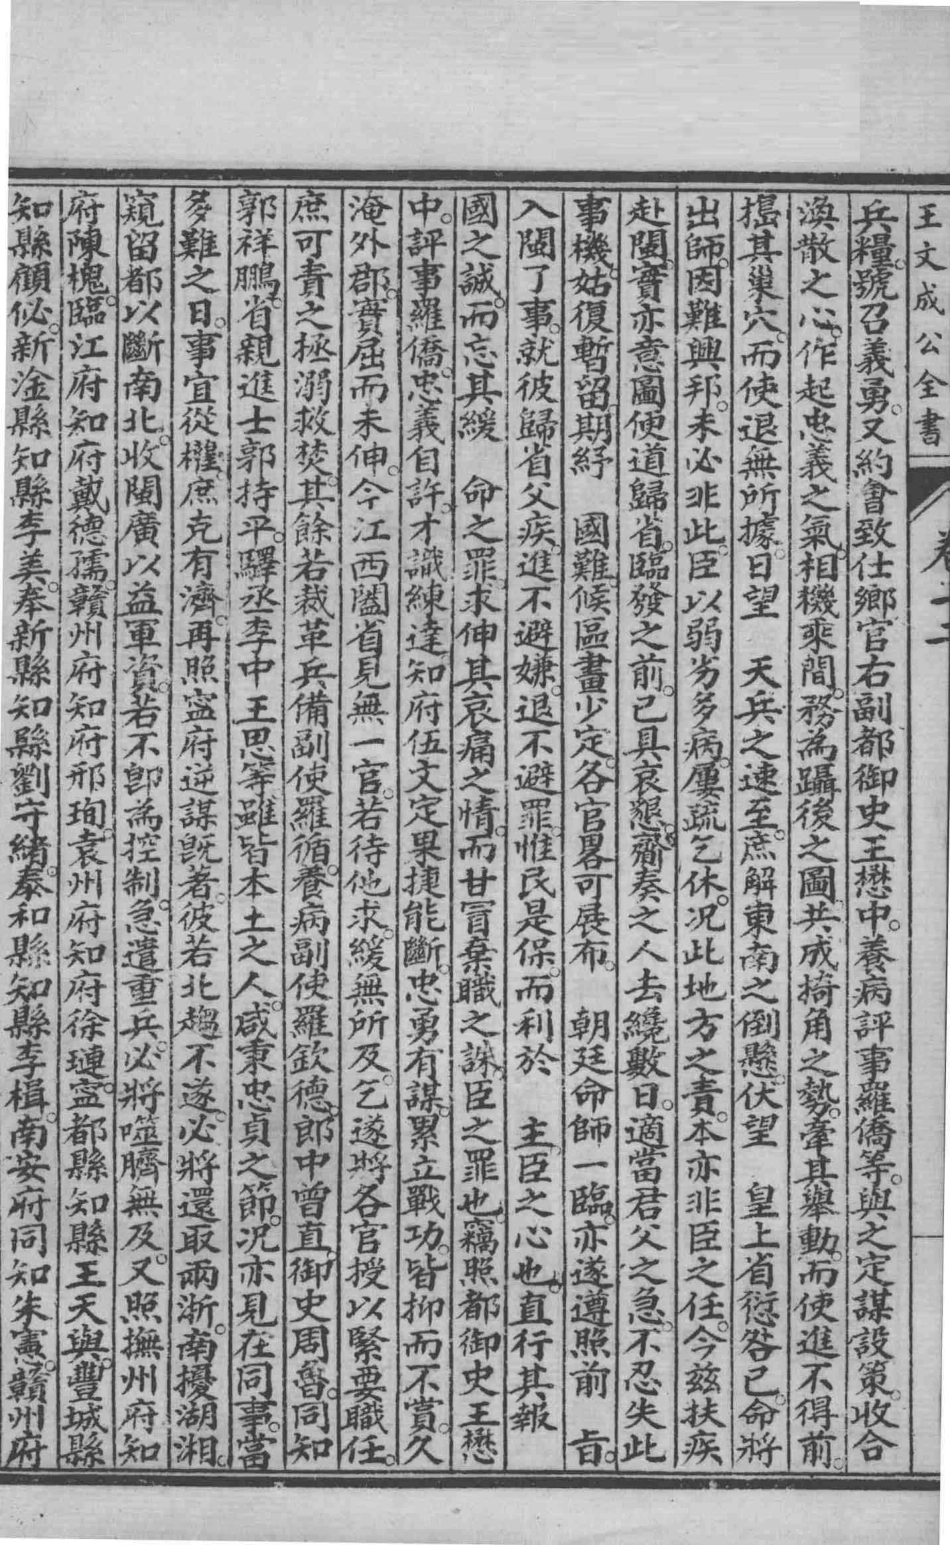 王文成公全書
卷十二
兵糧。號召義勇。又約會致仕鄉官右副都御史王懋中。養病評事羅僑等。與之定謀設策。收合
渙散之心。作起忠義之氣。相機乘間。務為躡後之圖。共成掎角之勢。牽其舉動。而使進不得前。
搗其巢穴。而使退無所據。日望　天兵之速至。庶解東南之倒懸。伏望　皇上省愆咎己。命將
出師。因難興邦。未必非此。臣以弱劣多病。屢疏乞休。况此地方之責。本亦非臣之任。今兹扶疾
赴閩。實亦意圖便道歸省。臨發之前。已具哀懇。齎奏之人去纔數日。適當君父之急。不忍失此
事機。姑復暫留。期紓　國難。候區畫少定。各官畧可展布。　朝廷命師一臨。亦遂遵照前　旨。
入閩了事。就彼歸省父疾。進不避嫌。退不避罪。惟民是保。而利於　主。臣之心也。直行其報
國之誠。而忘其緩　命之罪。求伸其哀痛之情。而甘冒棄職之誅。臣之罪也。竊照都御史王懋
中。評事羅僑。忠義自許。才識練達。知府伍文定果捷能斷。忠勇有謀。累立戰功。皆抑而不賞。久
淹外郡。實屈而未伸。今江西闔省見無一官。若待他求。緩無所及。乞遂將各官授以緊要職任。
庶可責之拯溺救焚。其餘若裁革兵備副使羅循。養病副使羅欽德。郎中曾直。御史周魯。同知
郭祥鵬。省親進士郭持平。驛丞李中王思等。雖皆本土之人。咸秉忠貞之節。况亦見在同事。當
多難之日。事宜從權。庶克有濟。再照寧府逆謀旣著。彼若北趨不遂。必將還取兩浙。南擾湖湘。
窺留都以斷南北。收閩廣以益軍資。若不卽為控制。急遣重兵。必將噬臍無及。又照撫州府知
府陳槐。臨江府知府戴德孺。贛州府知府邢珣。袁州府知府徐璉。寧都縣知縣王天與。豐城縣
知縣顧佖。新淦縣知縣李美。奉新縣知縣劉守緒。泰和縣知縣李楫。南安府同知朱憲。贛州府